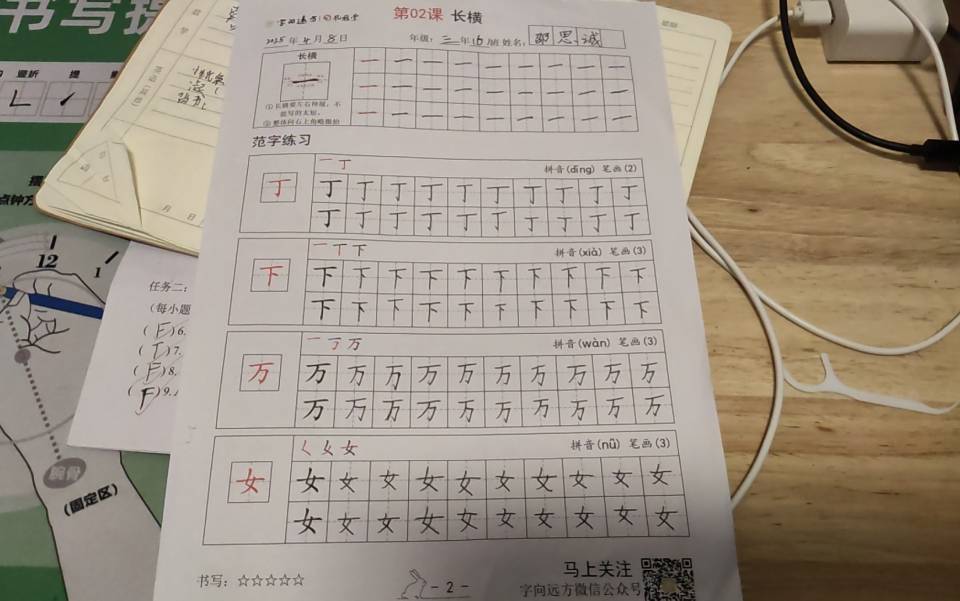 第02课 长横
2025年4月8日 年级:三年16班 姓名: 思诚
长横
①长横要左右伸展,不
能写的太短。
②整体向右上角略微抬
范字练习
一丁 拼音(dīng) 笔画(2)
丁 丁丁丁丁丁丁丁丁丁丁
丁丁丁丁丁丁丁丁丁丁
一丅下 拼音(xià) 笔画(3)
下 下下下下下下下下下下
下下下下下下下下下下
一丁万 拼音(wàn) 笔画(3)
万 万万万万万万万万万万
万万万万万万万万万万
女 拼音(nǚ) 笔画(3)
女 女女女女女女女女女女
女女女女女女女女女女
书写:☆☆☆☆☆
- 2 -
马上关注
字向远方微信公众号
书写
竖折 提
点钟方
12
1
腕骨
(固定区)
任务二:
(每小题
(F)6.
(T)7.
(F)8.
(F)9.
月 日